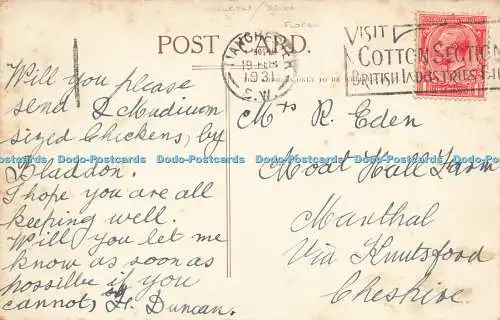 POST CARD.
MANCHESTER
19 FEB
1931
S.W.
VISIT
COTTON SECTION
BRITISH INDUSTRIES
Will you please
send 2 Mudium
sized Chickens, by
Bladdon.
I hope you are all
keeping well.
Will you let me
know as soon as
possible if you
cannot, H. Duncan.
Mrs R. Eden
Moat Hall Farm
Marthal
Via Knutsford
Cheshire
Dodo-Postcards Dodo-Postcards Dodo-Postcards Dodo-Postcards Dodo-Postcards